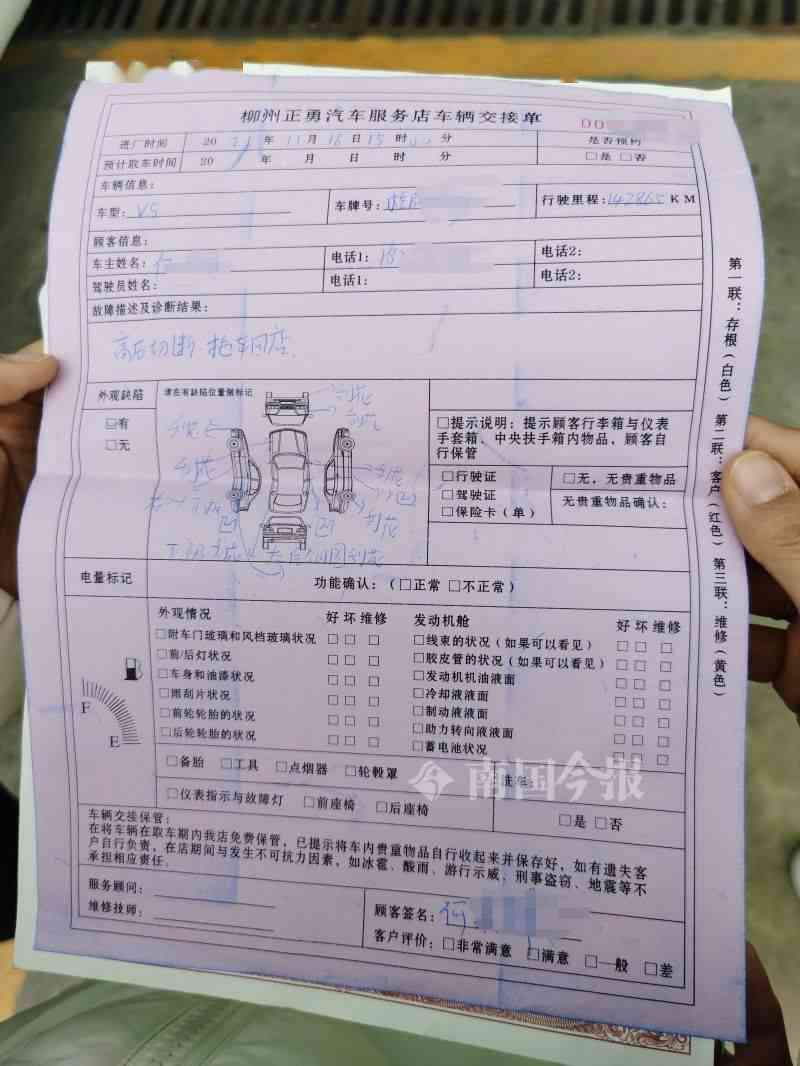 柳州正勇汽车服务店车辆交接单
00
进厂时间 2021年11月16日15时 分 是否预约
预计取车时间 20 年 月 日 时 分 □是 □否
车辆信息:
车型: V5 车牌号: 桂 行驶里程: 142865 KM
顾客信息:
车主姓名: 何 电话1: 18 电话2:
驾驶员姓名: 电话1: 电话2:
故障描述及诊断结果:
高石切断 拖车回店
外观缺陷 请在有缺陷位置侧标记
□有
□无
□提示说明: 提示顾客行李箱与仪表
手套箱、中央扶手箱内物品, 顾客自
行保管
□行驶证 □无, 无贵重物品
□驾驶证 无贵重物品确认:
□保险卡(单)
电量标记 功能确认: (□正常 □不正常)
外观情况 好 坏 维修 发动机舱 好 坏 维修
□附车门玻璃和风档玻璃状况 □□□ □线束的状况(如果可以看见) □□□
□前/后灯状况 □□□ □胶皮管的状况(如果可以看见) □□□
□车身和油漆状况 □□□ □发动机机油液面 □□□
□雨刮片状况 □□□ □冷却液液面 □□□
□前轮轮胎的状况 □□□ □制动液液面 □□□
□后轮轮胎的状况 □□□ □助力转向液液面 □□□
□蓄电池状况 □□□
F
E
□备胎 □工具 □点烟器 □轮毂罩 洗车:
□仪表指示与故障灯 □前座椅 □后座椅 □是 □否
车辆交接保管:
在将车辆在取车期内我店免费保管, 已提示将车内贵重物品自行收起来并保存好, 如有遗失客
户自行负责, 在店期间与发生不可抗力因素, 如冰雹、酸雨、游行示威、刑事盗窃、地震等不
承担相应责任.
服务顾问: 顾客签名: 何
维修技师: 客户评价: □非常满意 □满意 □一般 □差
第一联: 存根(白色) 第二联: 客户(红色) 第三联: 维修(黄色)
南国今报